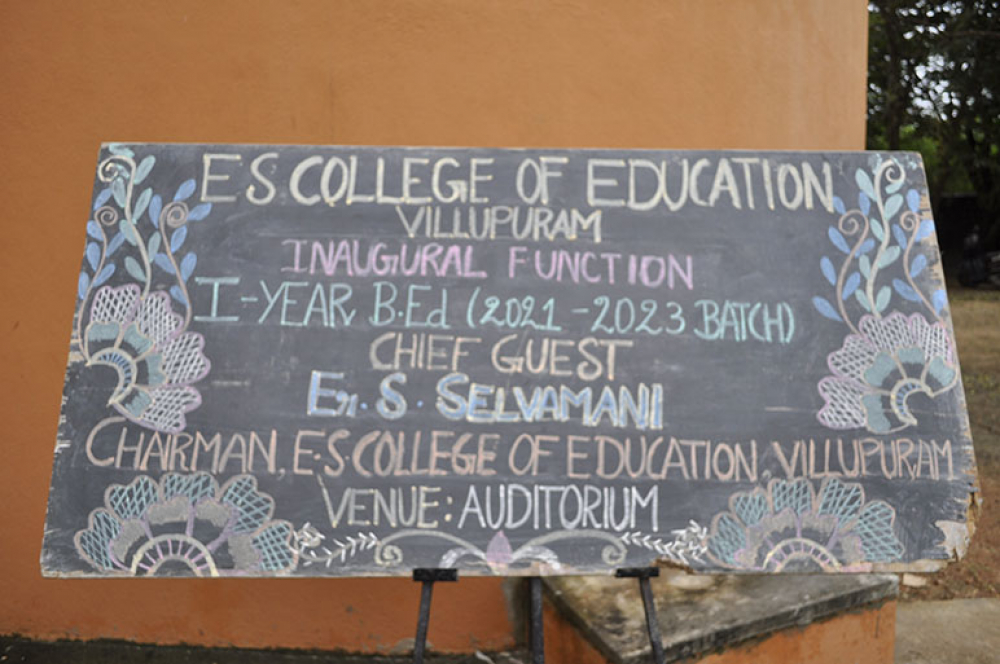 E S COLLEGE OF EDUCATION
VILLUPURAM
INAUGURAL FUNCTION
I-YEAR B.Ed (2021-2023 BATCH)
CHIEF GUEST
Er. S. SELVAMANI
CHAIRMAN, E.S.COLLEGE OF EDUCATION, VILLUPURAM
VENUE: AUDITORIUM